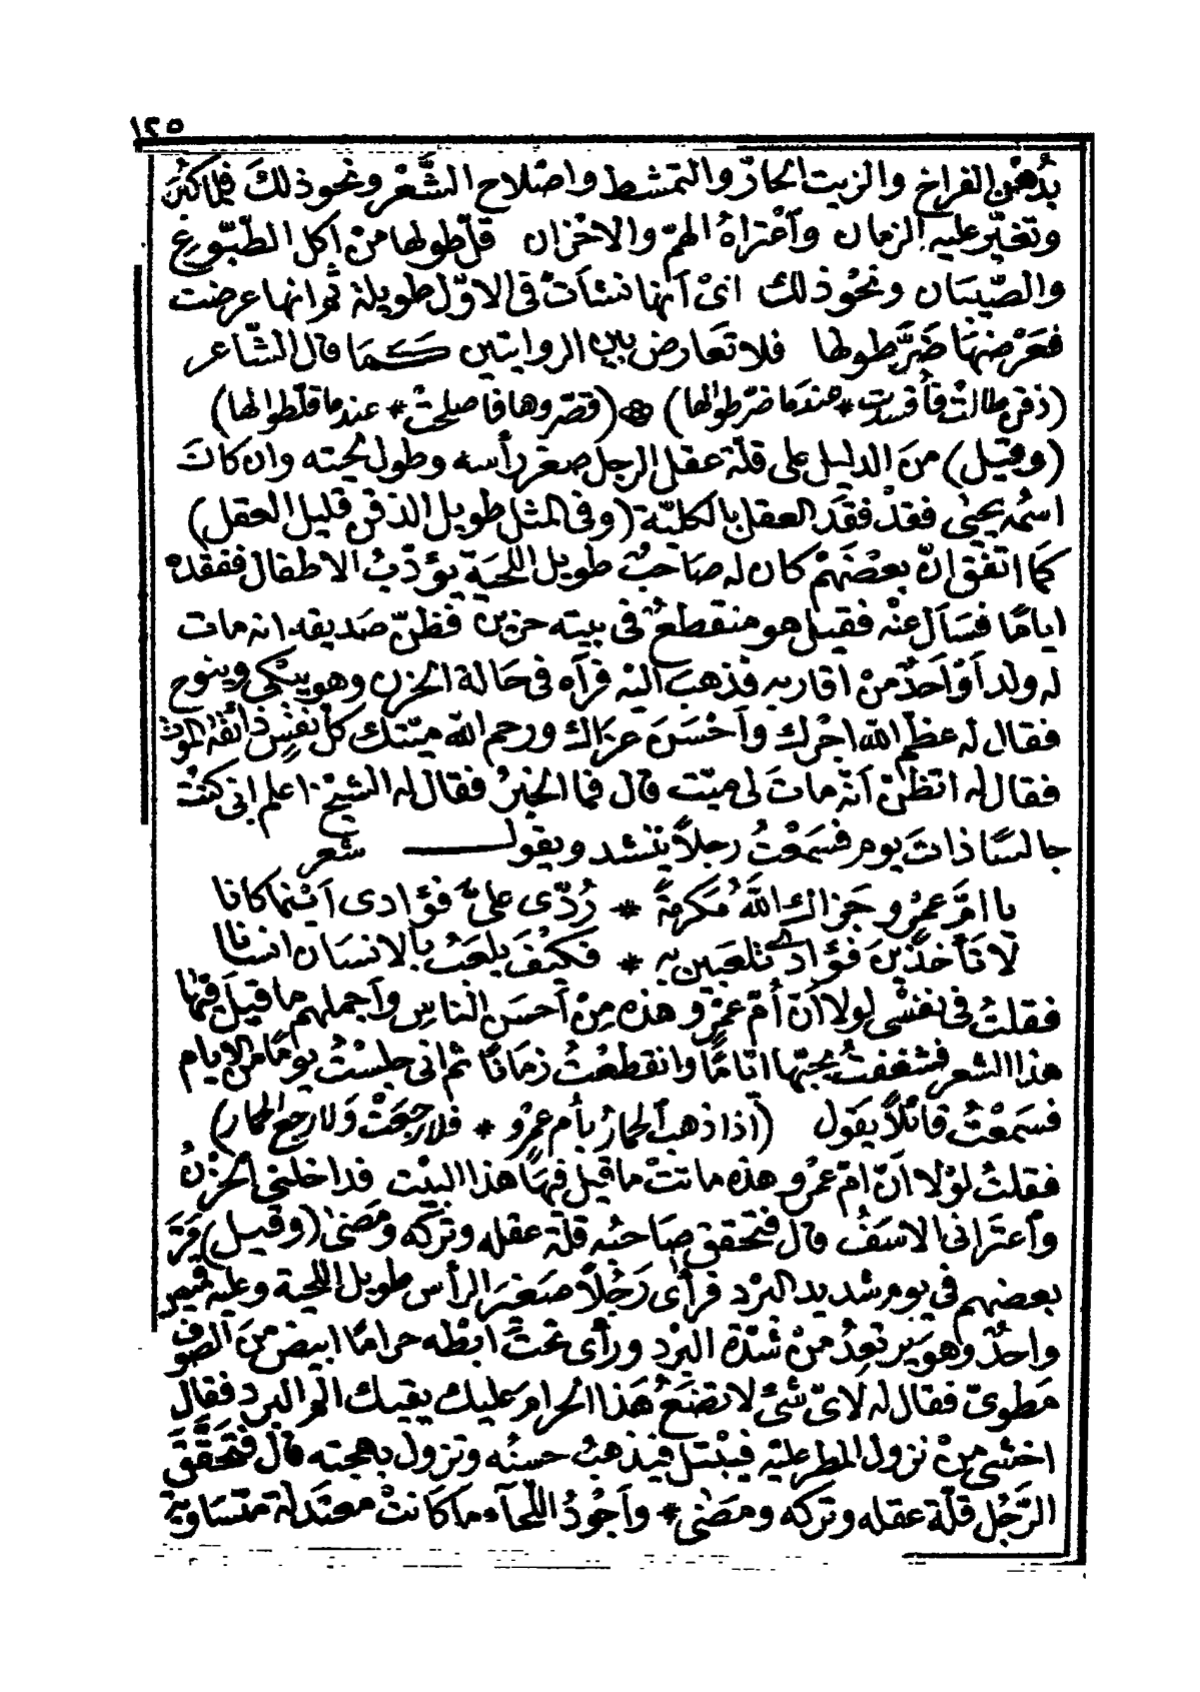 ١٢٥
بدُهْن الفراخ والزيت الحارّ والتمشط واصْلاح الشَّعْر ونحو ذلكَ فلما كَبُرَ
وتغيّر عليه الزمان وَاعْتراهُ الهمّ والاحْزان قلّ طولها منْ اكل الطّبّوغ
والصّيبان ونحْوذلك ائ انها نشأتْ فى الاوّل طويلة ثم انها عرضت
فعَرْضهَا ضَرَّ طولها فلا تعَارض بين الروايتين كمَا قال الشاعر
(ذقن طالتْ فأفسدت * عندَما ضرّ طولها) (قصّروها فاصلحتْ * عندما قلّ طولها)
(وقيل) منَ الدليل على قلّة عقل الرجل صغر رأسه وطول لحيته وان كانَ
اسمُه يحيى فقدْ فقَدَ العقل بالكليّة (وفى المثل طويل الذقن قليل العقل)
كما اتفق انّ بعضَهمْ كان له صَاحبٌ طويل اللحية يؤدّبُ الاطفال ففقده
ايامًا فسَأل عنْه فقيل هو منقطعٌ فى بيته حزين فظنّ صَديقه انه مات
له ولد أوْ أحَدٌ منْ اقاربه فذهبَ اليْه فرآه فى حَالة الحزن وهو يبْكى وينوح
فقال له عظّم الله اجْرك وَاحْسَنَ عزاك ورحم الله ميّتك كلّ نفْسٍ ذائقة الموْت
فقال له اتظنّ أنّه ماتَ لى ميّت قال فما الخبرُ فقال له الشيخ اعلم انى كنْتُ
جالسًا ذاتَ يوم فسَمعْتُ رجلاً ينشد ويقول شعر
يا امَّ عمرٍو جَزاك اللهُ مكرمةً * رُدّى علىَّ فؤادى ايْنما كانا
لا تأخذينَ فؤادى تلعَبين به * فكيْفَ يلعَبُ بالانسَان انسانا
فقلتُ فى نفسْى لولا أنّ أمّ عمْرو هذه مِنْ أحسَن الناسِ وأجملهم ما قيلَ فيهَا
هذا الشعر فشغفتُ بحبّها ايّامًا وانقطعْتُ زمَانًا ثم انى جلسْتُ يومًا من الايام
فسَمعْتُ قائلاً يقول (اذا ذهب الحمارُ بأم عمْرٍو * فلا رجعَتْ وَلا رجعَ الحمار)
فقلتُ لوْلا أنّ امّ عمْرو هذه ماتتْ ما قيل فيهَا هذا البيْت فداخلنى الحُزْنُ
وَاعتَرانى الاسَفُ قال فتحقق صَاحبُه قلّة عقله وتركه ومَضىٰ (وقيل) مَرَّ
بعضهم فى يوم شديد البرْد فرأى رَجُلاً صَغيرَ الرأس طويل اللحية وعليه قميص
واحدٌ وهوَ يرتعِدُ منْ شدّة البرْد ورأى تحتَ ابْطه حرامًا ابيض منَ الصّوف
مَطوىّ فقال له لاىّ شئْ لا تضَعُ هَذا الحرام عَليك يقيك الم البرد فقال
اخشى منْ نزول المطر عليْه فيبْتل فيَذهبُ حسنُه وتزول بهجته قال فتحَقَّقَ
الرَّجُل قلّة عقله وتركه ومضَى * وأجْودُ اللّحآء ما كانتْ معتَدلة متسَاوية